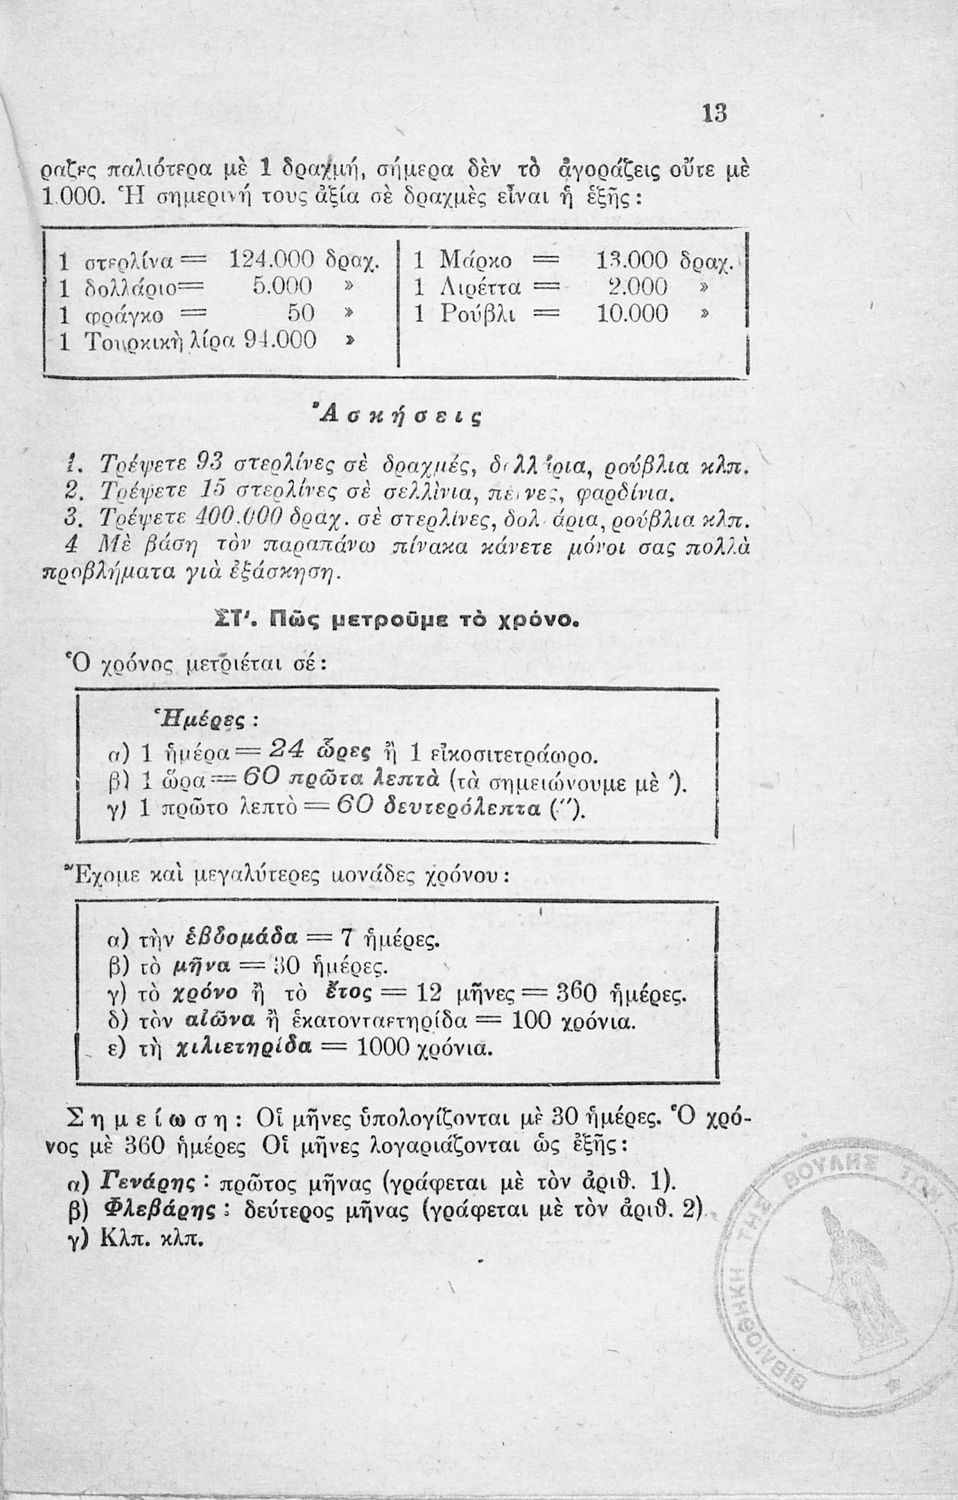 13
ραζες παλιότερα μὲ 1 δραχμή, σήμερα δὲν τὸ ἀγοράζεις οὔτε μὲ
1.000. Ἡ σημερινή τους ἀξία σὲ δραχμὲς εἶναι ἡ ἑξῆς:
1 στερλίνα = 124.000 δραχ.
1 δολλάριο = 5.000 »
1 φράγκο = 50 »
1 Τουρκικὴ λίρα 94.000 »
1 Μάρκο = 13.000 δραχ.
1 Λιρέττα = 2.000 »
1 Ρούβλι = 10.000 »
Ἀσκήσεις
1. Τρέψετε 93 στερλίνες σὲ δραχμές, δολλάρια, ρούβλια κλπ.
2. Τρέψετε 15 στερλίνες σὲ σελλίνια, πέννες, φαρδίνια.
3. Τρέψετε 400.000 δραχ. σὲ στερλίνες, δολλάρια, ρούβλια κλπ.
4 Μὲ βάση τὸν παραπάνω πίνακα κάνετε μόνοι σας πολλὰ
προβλήματα γιὰ ἐξάσκηση.
ΣΤ'. Πῶς μετροῦμε τὸ χρόνο.
Ὁ χρόνος μετριέται σέ:
Ἡμέρες:
α) 1 ἡμέρα = 24 ὧρες ἢ 1 εἰκοσιτετράωρο.
β) 1 ὥρα = 60 πρῶτα λεπτὰ (τὰ σημειώνουμε μὲ ').
γ) 1 πρῶτο λεπτὸ = 60 δευτερόλεπτα ('').
Ἔχομε καὶ μεγαλύτερες μονάδες χρόνου:
α) τὴν ἑβδομάδα = 7 ἡμέρες.
β) τὸ μῆνα = 30 ἡμέρες.
γ) τὸ χρόνο ἢ τὸ ἔτος = 12 μῆνες = 360 ἡμέρες.
δ) τὸν αἰῶνα ἢ ἑκατονταετηρίδα = 100 χρόνια.
ε) τὴ χιλιετηρίδα = 1000 χρόνια.
Σημείωση: Οἱ μῆνες ὑπολογίζονται μὲ 30 ἡμέρες. Ὁ χρό-
νος μὲ 360 ἡμέρες Οἱ μῆνες λογαριάζονται ὡς ἑξῆς:
α) Γενάρης: πρῶτος μῆνας (γράφεται μὲ τὸν ἀριθ. 1).
β) Φλεβάρης: δεύτερος μῆνας (γράφεται μὲ τὸν ἀριθ. 2).
γ) Κλπ. κλπ.
ΒΙΒΛΙΟΘΗΚΗ ΤΗΣ ΒΟΥΛΗΣ ΤΩΝ